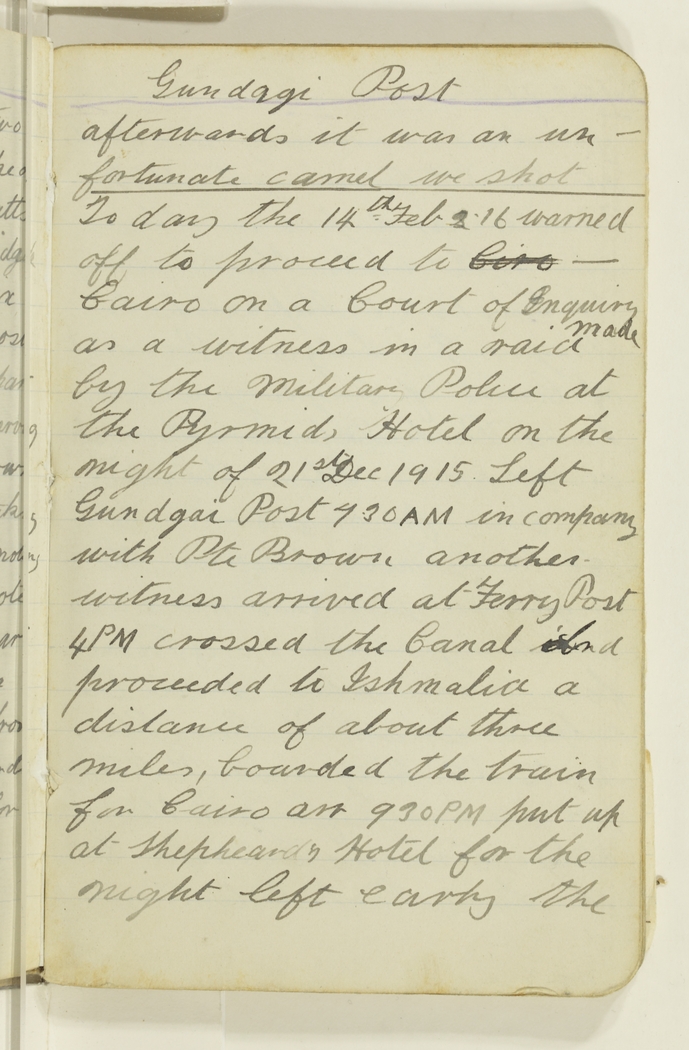 Gundagi Post
afterwards it was an un-
fortunate camel we shot
To day the 14th Feb 2.16 warned
off to proceed to Ciro -
Cairo on a Court of Enquiry
as a witness in a raid made
by the Military Police at
the Pyrmids Hotel on the
night of 21st Dec 1915. Left
Gundgai Post 930AM in company
with Pte Brown another
witness arrived at Ferry Post
4PM crossed the Canal and
proceeded to Ishmalia a
distance of about three
miles, boarded the train
for Cairo arr 930PM put up
at Shepheards Hotel for the
night left early the